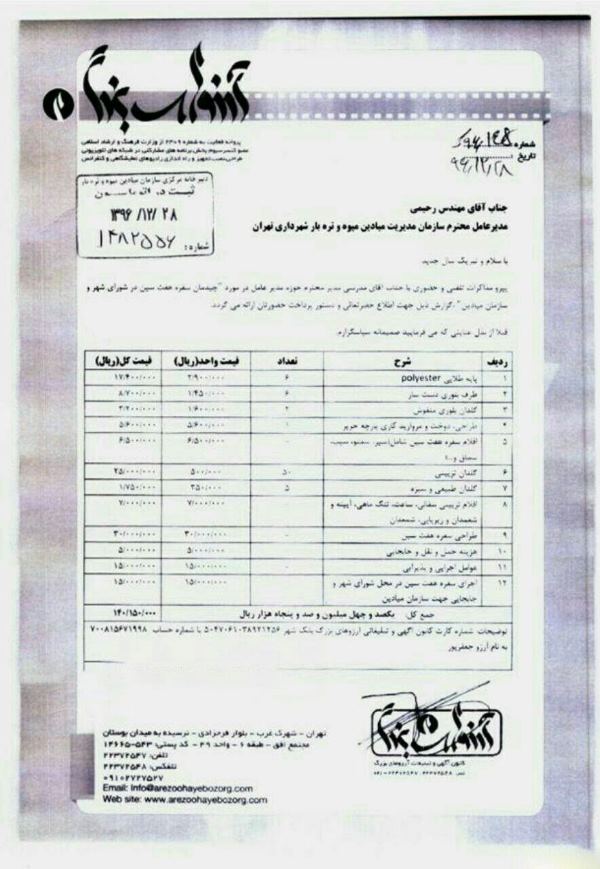 آرزوهای بزرگ
پروانه فعالیت به شماره ۲۳۰۹ از وزارت فرهنگ و ارشاد اسلامی
عضو کنسرسیوم پخش برنامه های مشارکتی در شبکه های تلویزیونی
طراحی، نصب، تجهیز و راه اندازی رادیوهای نمایشگاهی و کنفرانس
شماره
تاریخ: ۹۶/۱۲/۲۸
دبیرخانه مرکزی سازمان میادین میوه و تره بار
ثبت د.
۱۳۹۶/۱۲/۲۸
شماره: ۱۴۸۲۵۵۶
جناب آقای مهندس رحیمی
مدیرعامل محترم سازمان مدیریت میادین میوه و تره بار شهرداری تهران
با سلام و تبریک سال جدید
پیرو مذاکرات تلفنی و حضوری با جناب آقای مدرسی مدیر محترم حوزه مدیر عامل در مورد "چیدمان سفره هفت سین در شورای شهر و
سازمان میادین" ،گزارش ذیل جهت اطلاع حضرتعالی و دستور پرداخت حضورتان ارائه می گردد.
قبلا از بذل عنایتی که می فرمایید صمیمانه سپاسگزارم.
ردیف شرح تعداد قیمت واحد(ریال) قیمت کل(ریال)
۱ پایه طلایی polyester ۶ ۲/۹۰۰/۰۰۰ ۱۷/۴۰۰/۰۰۰
۲ ظرف بلوری دست ساز ۶ ۱/۴۵۰/۰۰۰ ۸/۷۰۰/۰۰۰
۳ گلدان بلوری منقوش ۲ ۱/۶۰۰/۰۰۰ ۳/۲۰۰/۰۰۰
۴ طراحی، دوخت و مروارید کاری پارچه حریر ۱ ۵/۶۰۰/۰۰۰ ۵/۶۰۰/۰۰۰
۵ اقلام سفره هفت سین شامل(سیر، سمنو، سیب، ۶/۵۰۰/۰۰۰ ۶/۵۰۰/۰۰۰
سماق و...)
۶ گلدان تزیینی ۵۰ ۵۰۰/۰۰۰ ۲۵/۰۰۰/۰۰۰
۷ گلدان طبیعی و سبزه ۵ ۳۵۰/۰۰۰ ۱/۷۵۰/۰۰۰
۸ اقلام تزیینی سفالی، ساعت، تنگ ماهی، آیینه و - ۷/۰۰۰/۰۰۰ ۷/۰۰۰/۰۰۰
شمعدان و زیرپایی، شمعدان
۹ طراحی سفره هفت سین - ۳۰/۰۰۰/۰۰۰ ۳۰/۰۰۰/۰۰۰
۱۰ هزینه حمل و نقل و جابجایی - ۵/۰۰۰/۰۰۰ ۵/۰۰۰/۰۰۰
۱۱ عوامل اجرایی و پذیرایی - ۱۵/۰۰۰/۰۰۰ ۱۵/۰۰۰/۰۰۰
۱۲ اجرای سفره هفت سین در محل شورای شهر و ۱۵/۰۰۰/۰۰۰ ۱۵/۰۰۰/۰۰۰
جابجایی جهت سازمان میادین
جمع کل: یکصد و چهل میلیون و صد و پنجاه هزار ریال ۱۴۰/۱۵۰/۰۰۰
توضیحات: شماره کارت کانون آگهی و تبلیغاتی آرزوهای بزرگ بانک شهر ۵۰۴۷۰۶۱۰۳۸۹۲۱۲۵۶ با شماره حساب ۷۰۰۸۱۵۶۷۱۹۹۸
به نام آرزو جعفرپور
تهران - شهرک غرب - بلوار فرحزادی - نرسیده به میدان بوستان
مجتمع افق - طبقه ۶ - واحد ۴۹ - کد پستی: ۵۴۳-۱۴۶۶۵
تلفن: ۲۲۳۷۲۵۴۷
تلفکس: ۲۲۳۷۲۵۴۸
۰۹۱۰۲۷۲۷۵۲۷
Email: Info@arezoohayebozorg.com
Web site: www.arezoohayebozorg.com
آرزوهای بزرگ
کانون آگهی و تبلیغات آرزوهای بزرگ